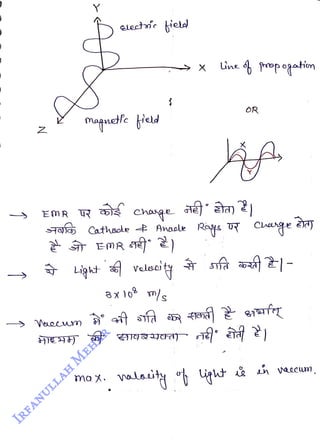 Y
electric field
X Line of propogation
Z
magnetic field
OR
X
Y
→ EMR पर कोई charge नहीं होता है|
जबकि Cathode & Anode Rays पर Charge होता
है जो EMR नहीं है|
→ ये Light की velocity से गति करती है|-
3x10⁸ m/s
→ Vaccum में भी गति कर सकती है अर्थात्
माध्यम की आवश्यकता नहीं होती है|
max. velocity of light is in vaccum.
IRFANULLAH MEHER